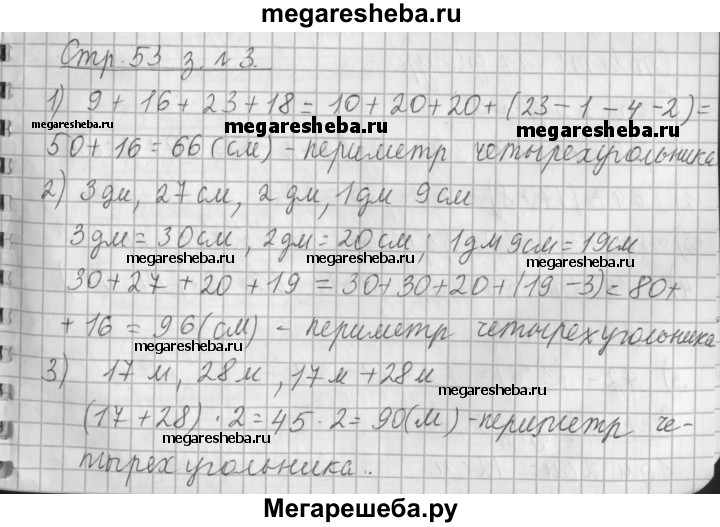 megaresheba.ru
Стр. 53 з. №3.
1) 9 + 16 + 23 + 18 = 10 + 20 + 20 + (23 - 1 - 4 - 2) =
megaresheba.ru megaresheba.ru megaresheba.ru
50 + 16 = 66 (см) - периметр четырехугольника
2) 3 дм, 27 см, 2 дм, 1 дм 9 см
3 дм = 30 см, 2 дм = 20 см; 1 дм 9 см = 19 см
megaresheba.ru megaresheba.ru megaresheba.ru
30 + 27 + 20 + 19 = 30 + 30 + 20 + (19 - 3) = 80 +
+ 16 = 96 (см) - периметр четырехугольника
megaresheba.ru
3) 17 м, 28 м, 17 м + 28 м
megaresheba.ru
(17 + 28) · 2 = 45 · 2 = 90 (м) - периметр че-
megaresheba.ru
тырехугольника..
Мегарешеба.ру